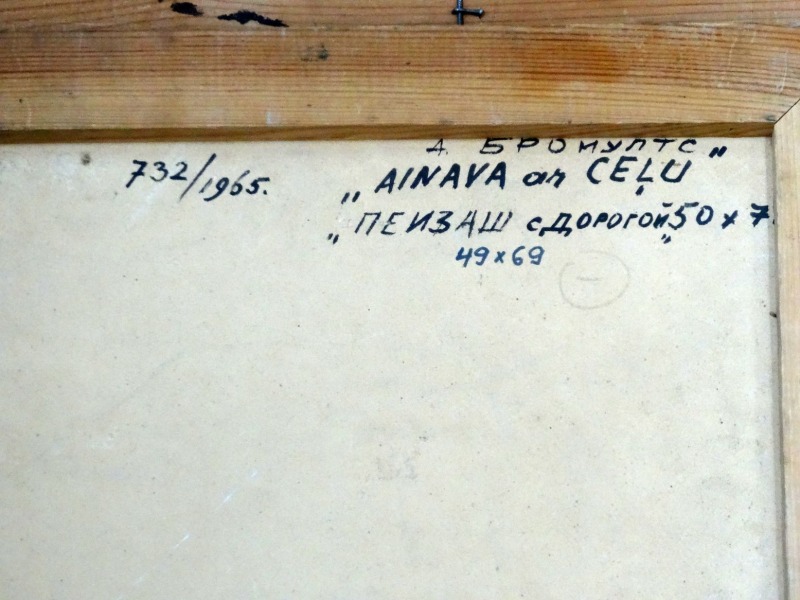 А. БРОМУЛТС
732/1965. „AINAVA ar CEĻU"
„ПЕИЗАШ с ДОРОГОЙ„ 50 x 7
49x69